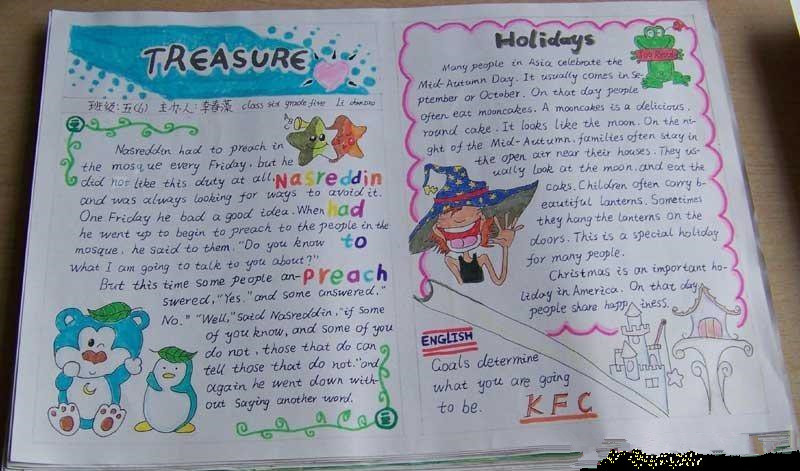 TREASURE
班级:五(6) 主办人:李春藻 class six grade five Li
ABC
Nasreddin had to preach in
the mosque every Friday, but he
did not like this duty at all, Nasreddin
and was always looking for ways to avoid it.
One Friday he bad a good idea. When had
he went up to begin to preach to the people in the
mosque, he said to them, "Do you know to
what I am going to talk to you about?"
But this time some people an- preach
swered, "Yes." and some answered,"
No." "Well," said Nasreddin, "if some
of you know, and some of you
do not, those that do can
tell those that do not." and
again he went down with-
out saying another word.
Holidays
Many people in Asia celebrate the
Mid-Autumn Day. It usually comes in Se-
ptember or October. On that day people
often eat mooncakes. A mooncakes is a delicious,
round cake. It looks like the moon. On the ni-
ght of the Mid-Autumn, families often stay in
the open air near their houses. They us-
ually look at the moon, and eat the
caks. Children often carry b-
eautiful lanterns. Sometimes
they hang the lanterns on the
doors. This is a special holiday
for many people.
Christmas is an important ho-
liday in America. On that day
people share happiness.
ENGLISH
Goals determine
what you are going
to be.
KFC